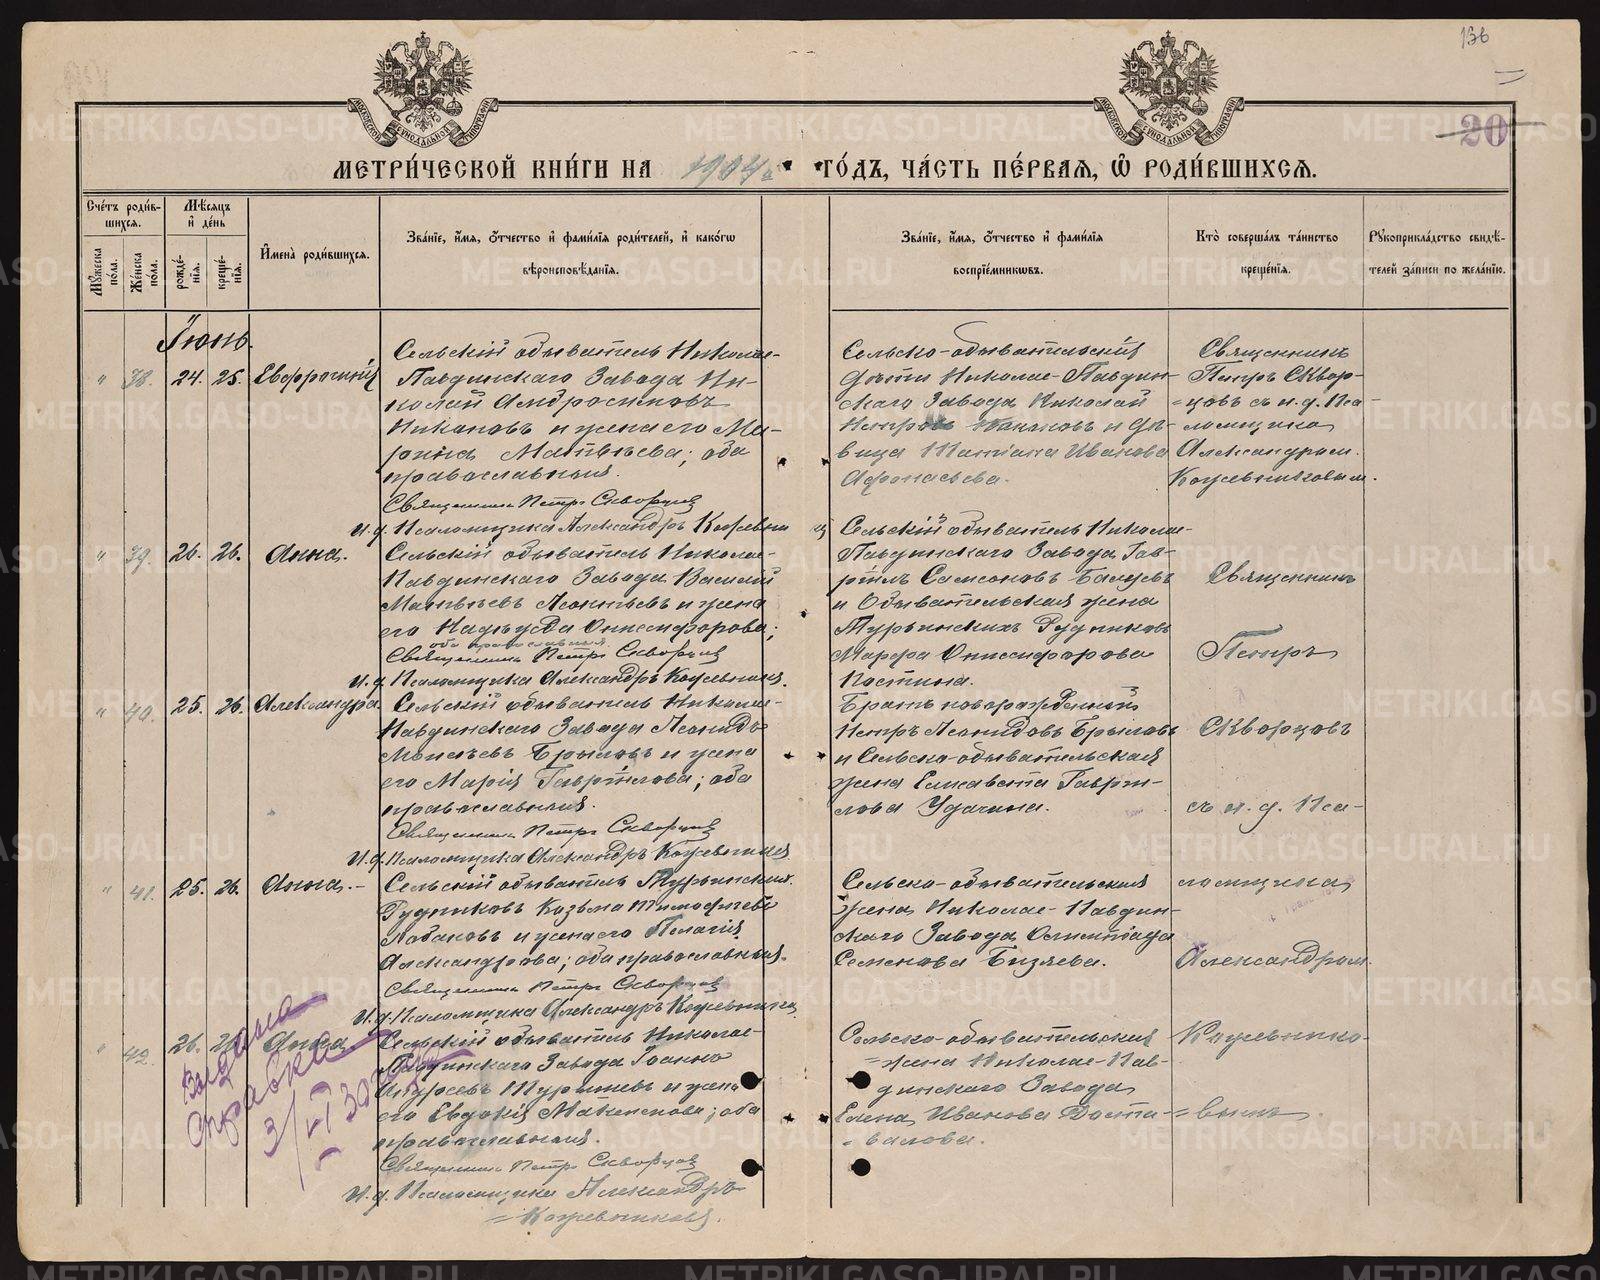 136
20
МЕТРИ́ЧЕСКОЙ КНИ́ГИ НА 1904 го́дъ, ЧА́СТЬ ПЕ́РВАЯ, Ѽ РОДИ́ВШИХСЯ.
Сче́тъ роди́в-
шихся.
Мꙋ́жеска пола.
Же́нска пола.
Мѣ́сяцъ и де́нь
рожде́-
нїя.
креще́-
нїя.
И҆мена̀ роди́вшихся.
Зва́нїе, и҆́мя, ѻ҆́тчество и҆ фами́лїя роди́телей, и҆ како́гѡ
вѣроисповѣ́данїя.
Зва́нїе, и҆́мя, ѻ҆́тчество и҆ фами́лїя
воспрїе́мникѡвъ.
Кто̀ соверша́лъ та́инство
креще́нїя.
Рꙋкоприкла́дство свидѣ́-
телей за́писи по жела́нїю.
Іюнь.
" 38. 24. 25.
Сельскій обыватель Николае-
Павдинскаго Завода Ни-
колай Андрониковъ
и жена его Ма-
рина Матвѣева; оба
православныя.
Священникъ Петръ Скворцовъ
И.д. Псаломщика Александръ Кожевник
Сельско-обывательскія
дѣти Николае-Павдин-
скаго Завода Николай
Петровъ и дѣ-
вица Татіана Иванова
Афонасьева.
Священникъ
Петръ Сквор-
=цовъ съ и.д. Пса-
ломщика
Александром.
Кожевниковым.
" 39. 26. 26. Анна.
Сельскій обыватель Николае-
Павдинскаго Завода Василій
Матвѣевъ Леонтьевъ и жена
его Надежда Онисифорова;
оба православныя.
Священникъ Петръ Скворцовъ
И.д. Псаломщика Александръ Кожевник.
Сельскій обыватель Николае-
Павдинскаго Завода Гав-
ріилъ Самсоновъ
и Обывательская жена
Турьинскихъ Рудниковъ
Марфа Онисифорова
Костина.
Священникъ
Петръ
" 40. 25. 26. Александра
Сельскій обыватель Николае-
Павдинскаго Завода Леонидъ
Моисѣевъ Брылевъ и жена
его Марія Гавріилова; оба
православныя.
Священникъ Петръ Скворцовъ
И.д. Псаломщика Александръ Кожевников
Братъ новорожденной
Петръ Леонидовъ Брылевъ
и Сельско-обывательская
жена Елисавета Гаврі-
лова Удачина.
Скворцовъ
съ и. д. Пса-
" 41. 25. 26. Анна.-
Сельскій обыватель Турьинских.
Рудниковъ Козьма Тимофѣевъ
Лобановъ и жена его Пелагія
Александрова; оба православныя.
Священникъ Петръ Скворцовъ
И.д. Псаломщика Александръ Кожевников
Сельско-обывательская
жена Николае-Павдин-
скаго Завода Олимпіада
Семенова Бизяева.
ломщика
Александром.
" 42. 26. 26. Анна
Сельскій обыватель Николае-
Павдинскаго Завода Іоаннъ
и жена
его Евдокія; оба
православныя.
Священникъ Петръ Скворцовъ
И.д. Псаломщика Александръ
=Кожевниковъ.
Сельско-обывательская
=жена Николае-Пав-
динскаго Завода
Елена Иванова Дости-
=валова.
Кожевнико-
=вымъ.
Выдана
справка